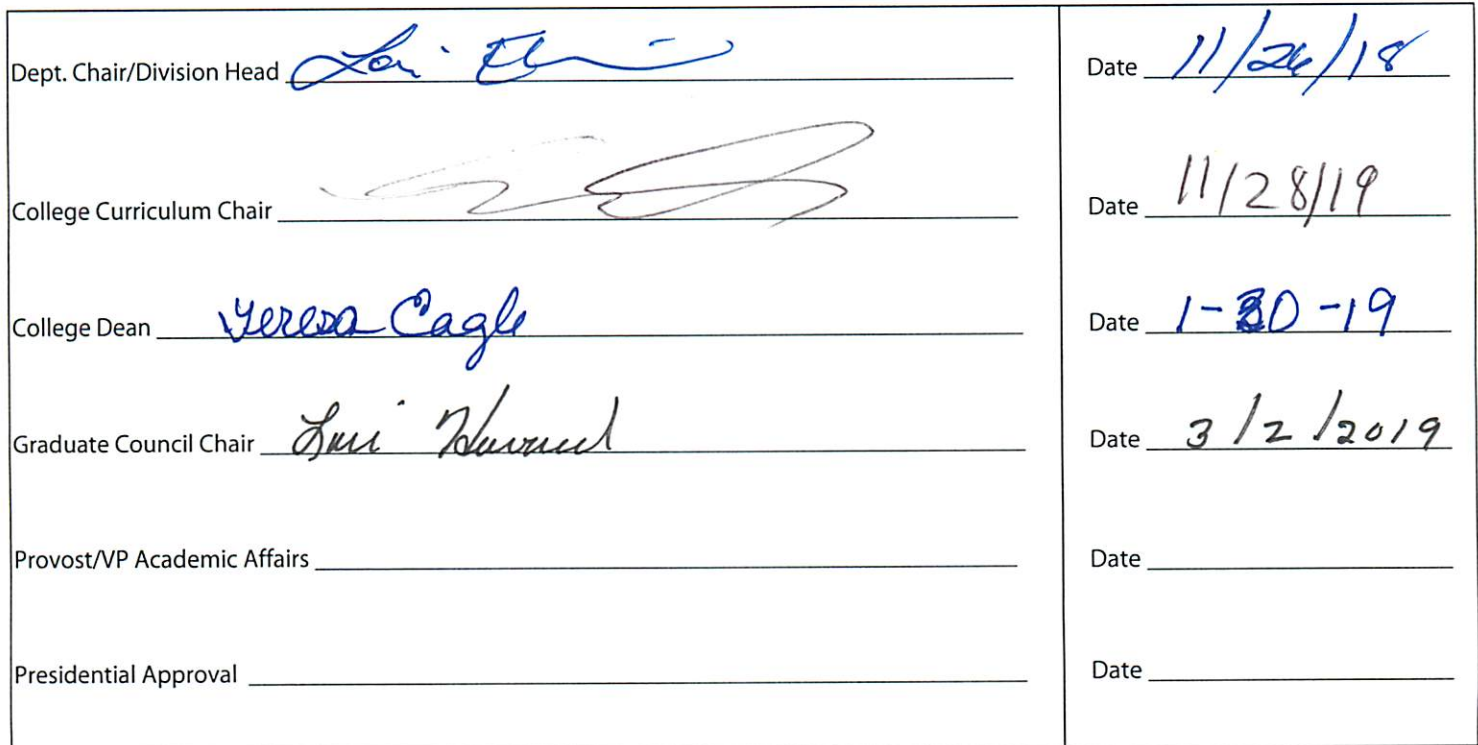 Dept. Chair/Division Head Lori Date 11/26/18
College Curriculum Chair Date 11/28/19
College Dean Teresa Cagle Date 1-30-19
Graduate Council Chair Lori Date 3/2/2019
Provost/VP Academic Affairs Date
Presidential Approval Date